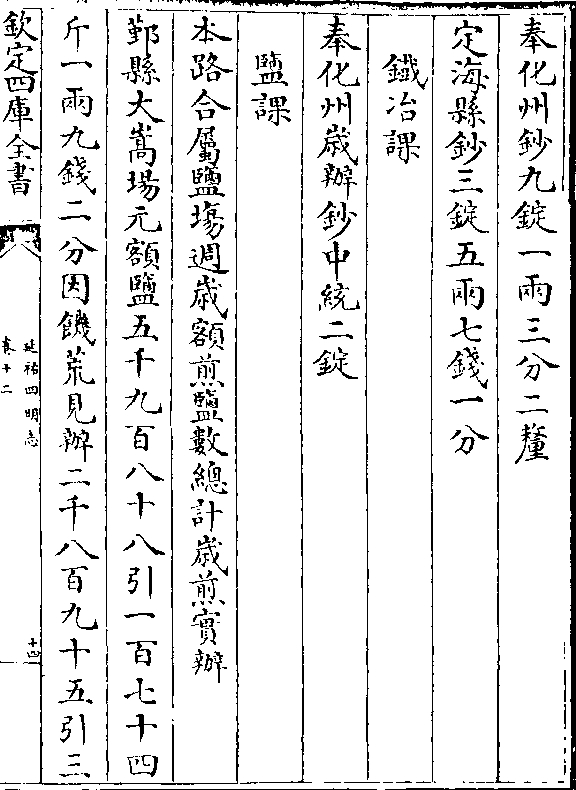 奉化州鈔九錠一兩三分二釐
定海縣鈔三錠五兩七錢一分
鐵冶課
奉化州歲辦鈔中統二錠
鹽課
本路合屬鹽塲週歲額煎鹽數總計歲煎實辦
鄞縣大嵩塲元額鹽五千九百八十八引一百七十四
斤一兩九錢二分因饑荒見辦二千八百九十五引三
欽定四庫全書
延祐四明志
卷十二
十四